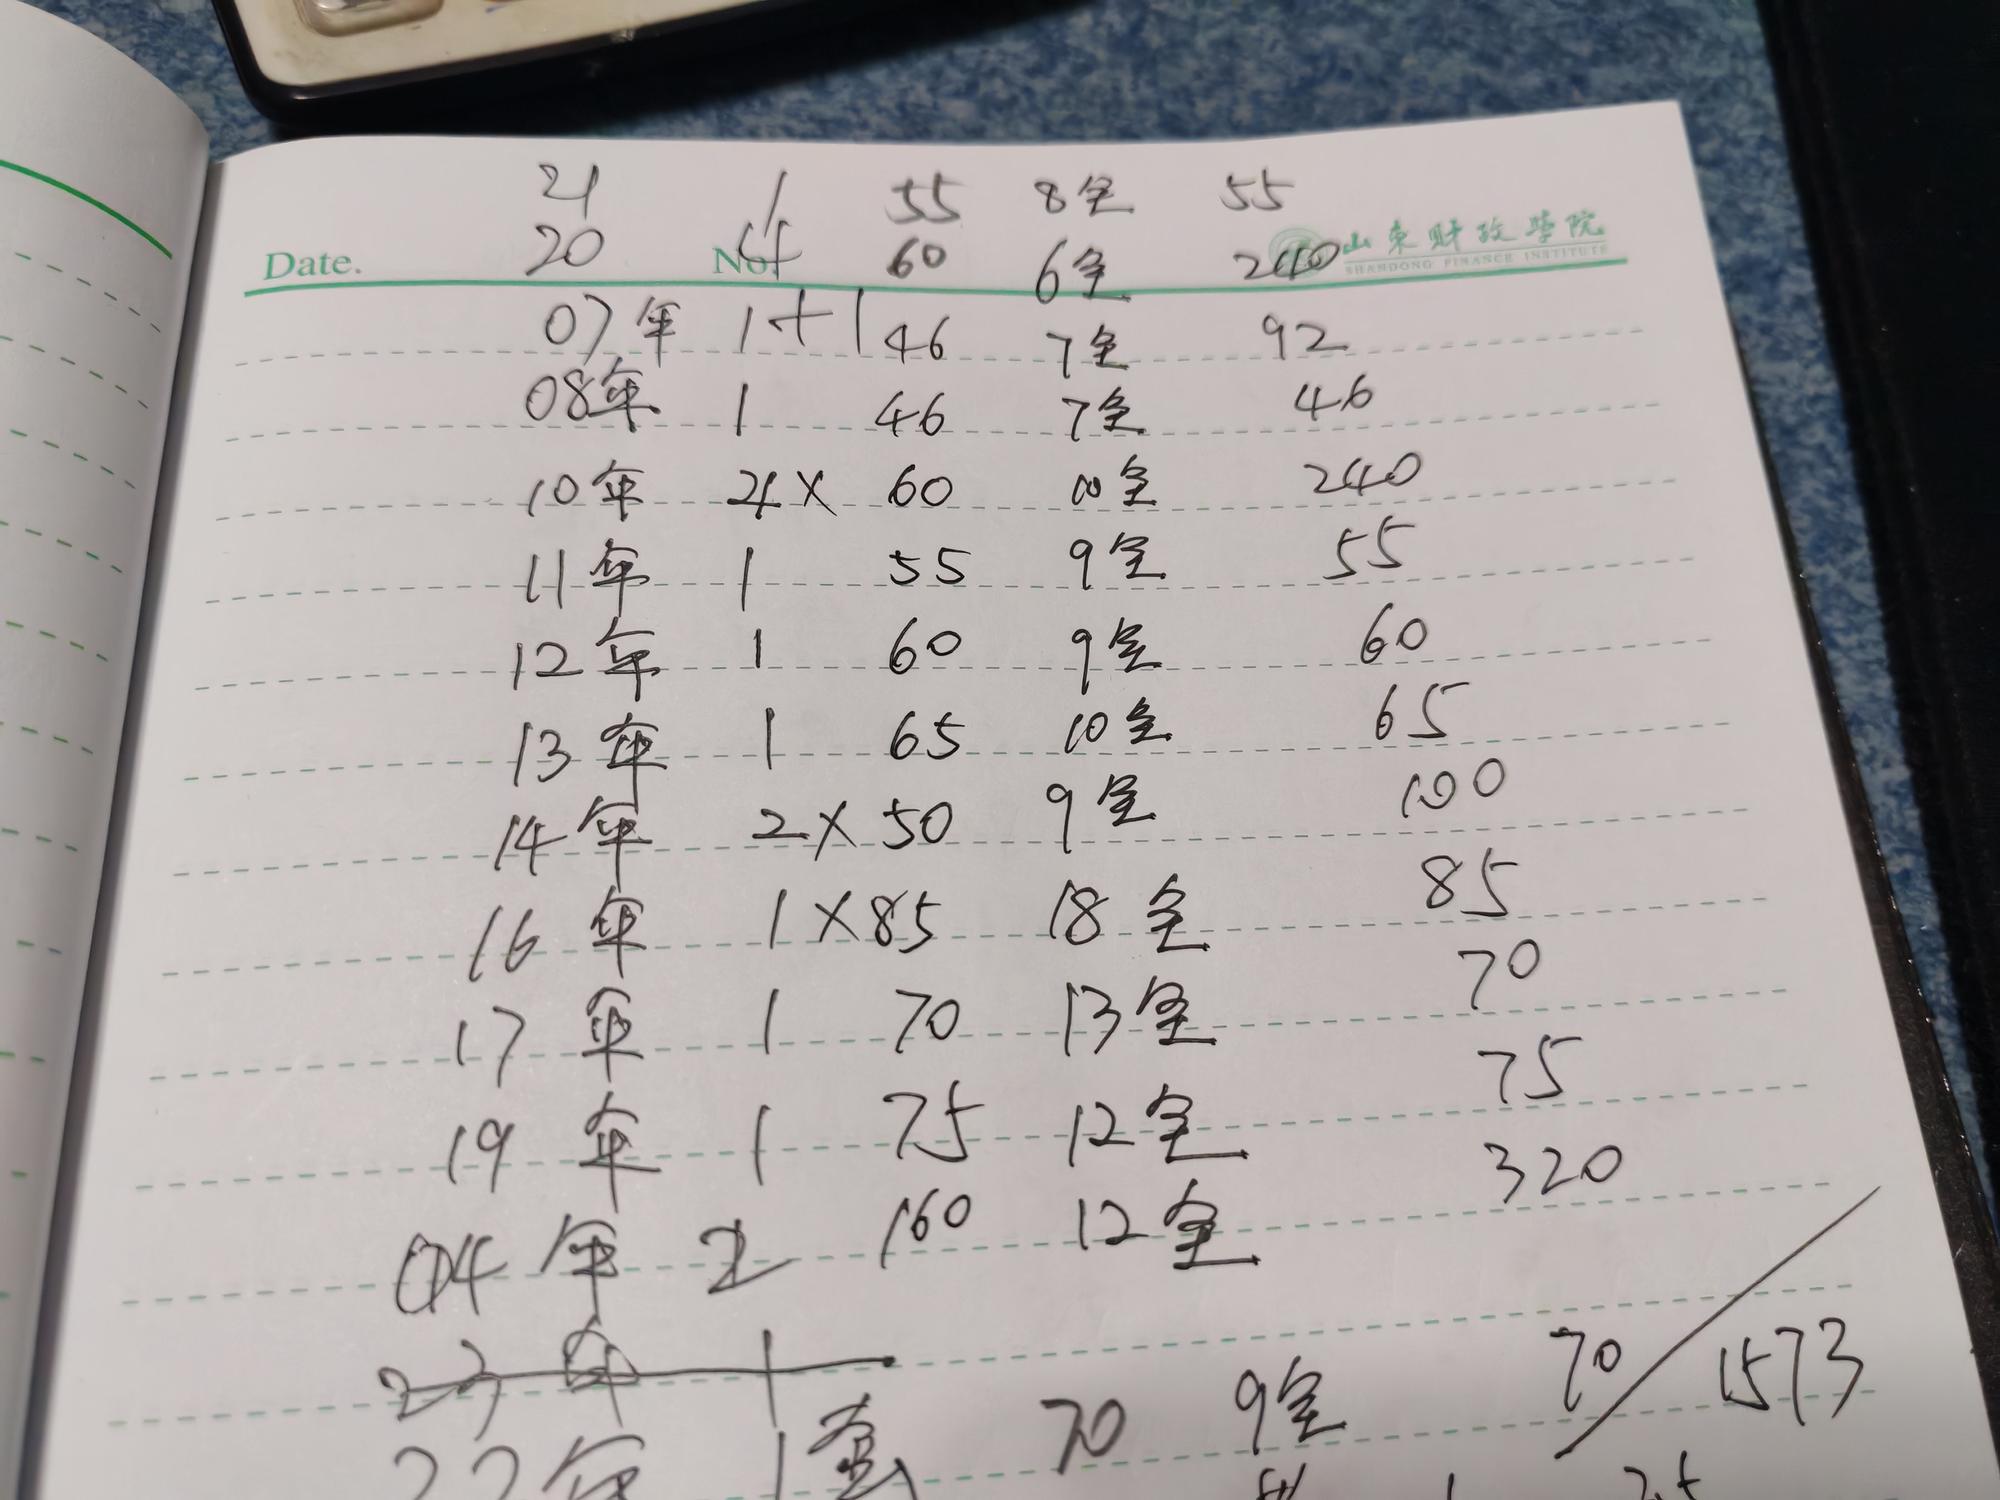 21 1 55 8全 55
Date. 20 No. 4 60 6全 240 山东财政学院
SHANDONG FINANCE INSTITUTE
07年 1+1 46 7全 92
08年 1 46 7全 46
10年 4× 60 10全 240
11年 1 55 9全 55
12年 1 60 9全 60
13年 1 65 10全 65
14年 2×50 9全 100
16年 1×85 18全 85
17年 1 70 13全 70
19年 1 75 12全 75
04年 2 160 12全 320
23年 1
22年 1套 70 9全 70 1573